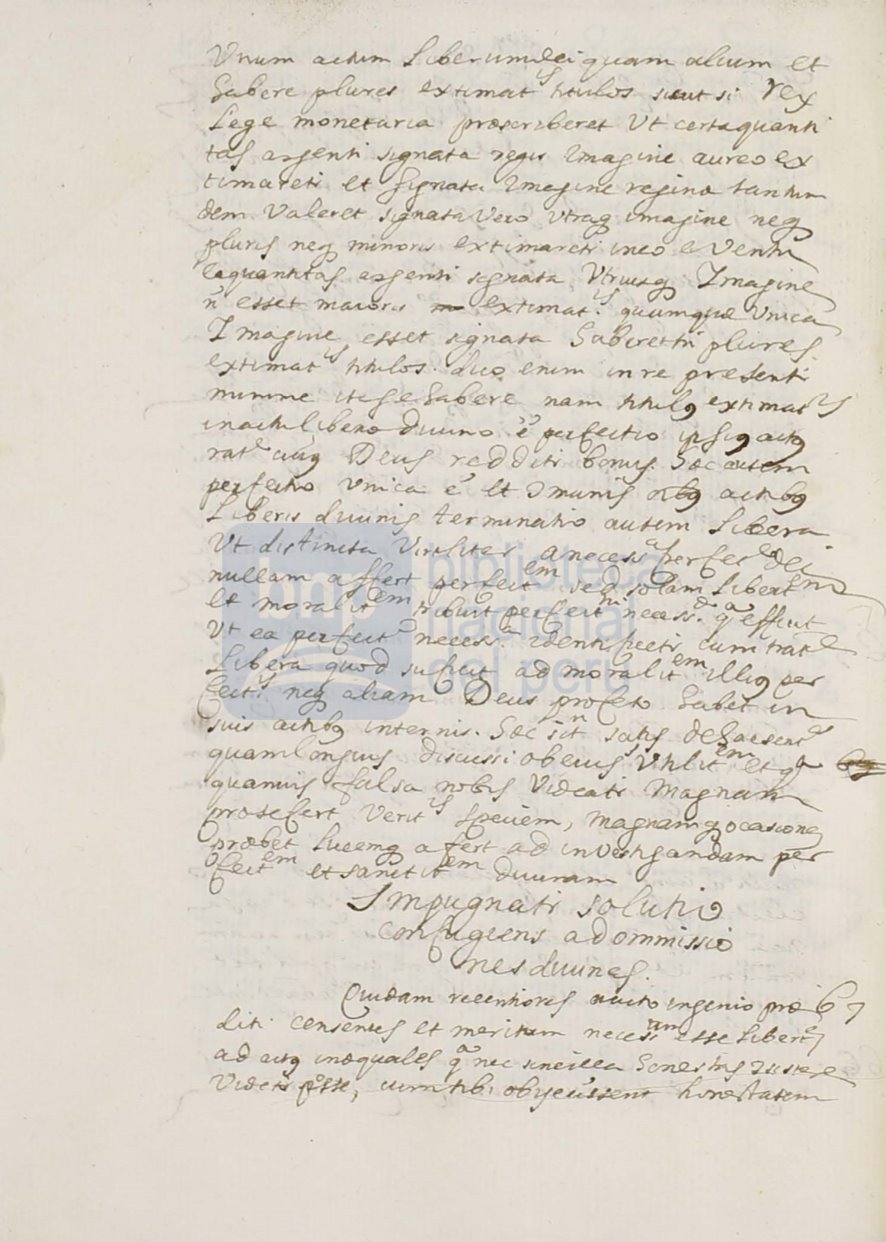 Vnum actum Liberum dei quam alium et
habere plures extimat.is titulos sicut si rex
Lege monetaria præscriberet Vt certa quanti
tas argenti signata regis Imagine aureo ex
timareti et signata Imagine reginæ tantun
dem Valeret signata Vero Vtraq imagine neq
pluris neq minoris extimareti in eo eVentu
ea quantitas argenti signata Vtriusq Imagine
ñ esset maioris extimat.is quamquæ Vnica
Imagine esset signata haberet tñ plures
extimat.is titulos. duo enim in re præsenti
minime ita se habere nam titulq extimat.is
in actu libero diuino ẽ perfectio ipsiq actq
rat.e cuiq Deus redditi bonus. hæc autem
perfectio Vnica ẽ et Omunis oibq actibq
Liberis diuinis terminatio autem Libera
Vt distincta Virtliter a necess.a perfect.e dei
nullam affert perfect.em sed solam Libert.em
et moralit.em tribuit perfect.ni necess.æ q.a efficit
Vt ea perfect.o necess.a identificeti cum trat.e
Libera quod suficit ad moralit.em illiq per
fect.is neq aliam Deus profecto habet in
suis actibq internis. hæc sint satis de hac sent.a
quam longius discussi ob eius Vtilit.em et q.a
quamuis falsa nobis Videati Magnam
præsefert Verit.is speciem, magnamq ocasionẽ
præbet Lucemq afert ad inVestigandam per
fect.em et sanctit.em diuinam
Impugnati solutio
confugiens ad ommissio
nes diuinas.
Quidam recentiores acuto ingenio præ 67
diti censentes et meritum necess.am esse Libert.em
ad actq inæquales q.a nec sine illa honestas
Videti posse, cum tibi obijecissent honestatem